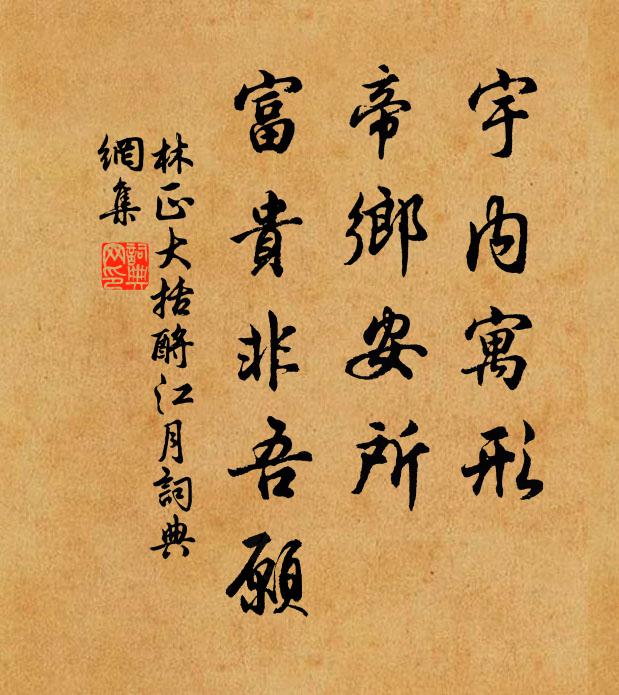 宇内寓形
帝鄉安所
富貴非吾願
林正大括酹江月詞典
網集
詞典
网印